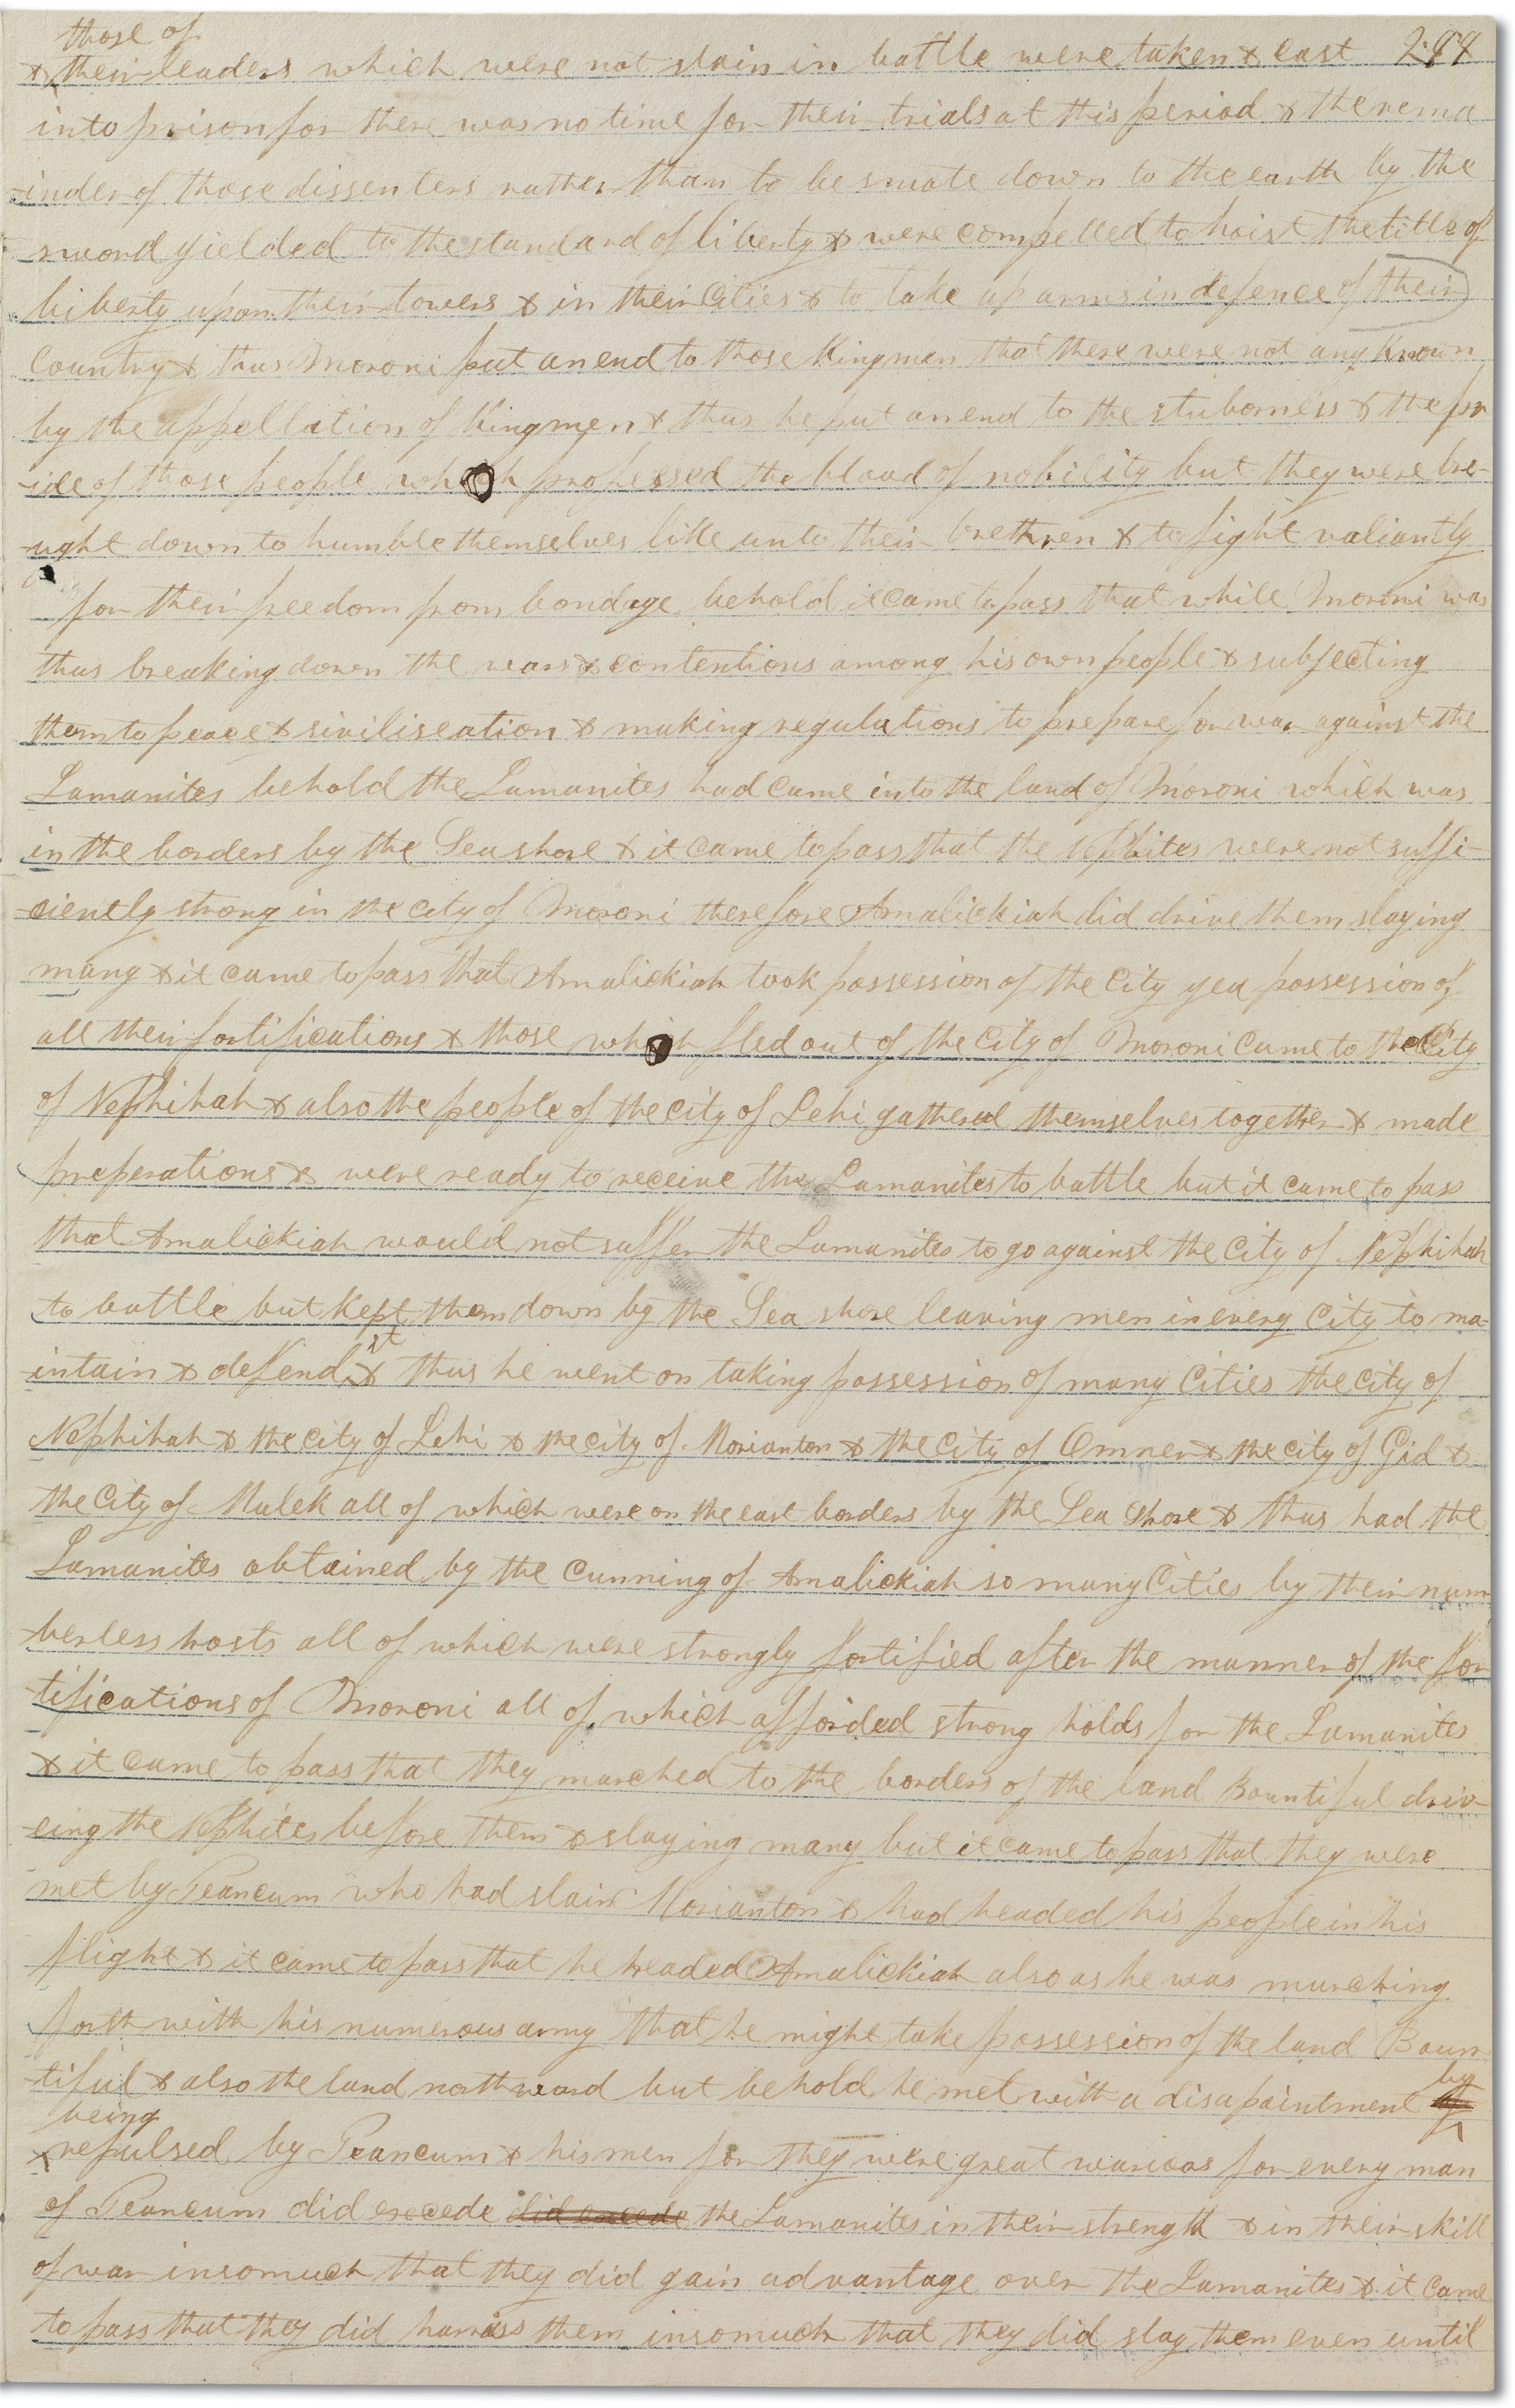 those of
& their leaders which were not slain in battle were taken & cast 284
into prison for there was no time for their trials at this period & the rema
-inder of those dissenters rather than to be smote down to the earth by the
sword yielded to the standard of liberty & were compelled to hoist the title of
liberty upon their towers & in their Cities & to take up arms in defence of their
Country & thus Moroni put an end to those Kingmen that there were not any known
by the appellation of Kingmen & thus he put an end to the stuborness & the pr
-ide of those people which professed the blood of nobility but they were bro-
-ught down to humble themselves like unto their brethren & to fight valiantly
for their freedom from bondage behold it came to pass that while Moroni was
thus breaking down the wars & contentions among his own people & subjecting
them to peace & siviliseation & making regulations to prepare for war against the
Lamanites behold the Lamanites had came into the land of Moroni which was
in the borders by the Sea shore & it came to pass that the Nephites were not suffi-
-cienely strong in the city of Moroni therefore Amalickiah did drive them slaying
many & it came to pass that Amalickiah took possession of the City yea possession of
all their fortifications & those which fled out of the City of Moroni came to the City
of Nephihah & also the people of the City of Lehi gathered themselves together & made
preperations & were ready to receive the Lamanites to battle but it came to pass
that Amalickiah would not suffer the Lamanites to go against the City of Nephihah
to battle but kept them down by the Sea shore leaving men in every City to ma-
it
-intain & defend & thus he went on taking possession of many Cities the City of
Nephihah & the city of Lehi & the city of Morianton & the City of Omner & the city of Gid &
the City of Mulek all of which were on the east borders by the Sea Shore & thus had the
Lamanites obtained by the Cunning of Amalickiah so many Cities by their num
-berless hosts all of which were strongly fortified after the manner of the for
tifications of Moroni all of which afforded strong holds for the Lamanites
& it came to pass that they marched to the borders of the land Bountiful driv-
-eing the Nephites before them & slaying many but it came to pass that they were
met by Teancum who had slain Morianton & had headed his people in his
flight & it came to pass that he headed Amalickiah also as he was marching
forth with his numerous army that he might take possession of the land Boun
by
-tiful & also the land northward but behold he met with a disapointment
being
repulsed by Teancum & his men for they were great wariors for every man
of Teancum did excede did excede the Lamanites in their strength & in their skill
of war insomuch that they did gain advantage over the Lamanites & it came
to pass that they did harriss them insomuch that they did slay them even until